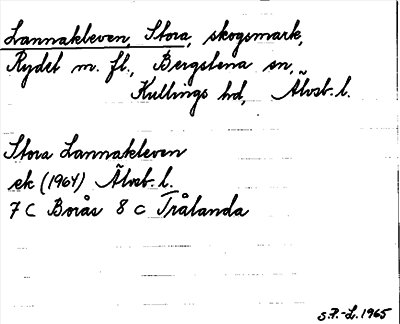 Lannakleven, Stora, skogsmark,
Rydet m. fl., Bergstena sn,
Kullings hd, Älvsb. l.
Stora Lannakleven
ek (1964) Älvsb. l.
7 C Borås 8 c Trålanda
S.F.-L. 1965